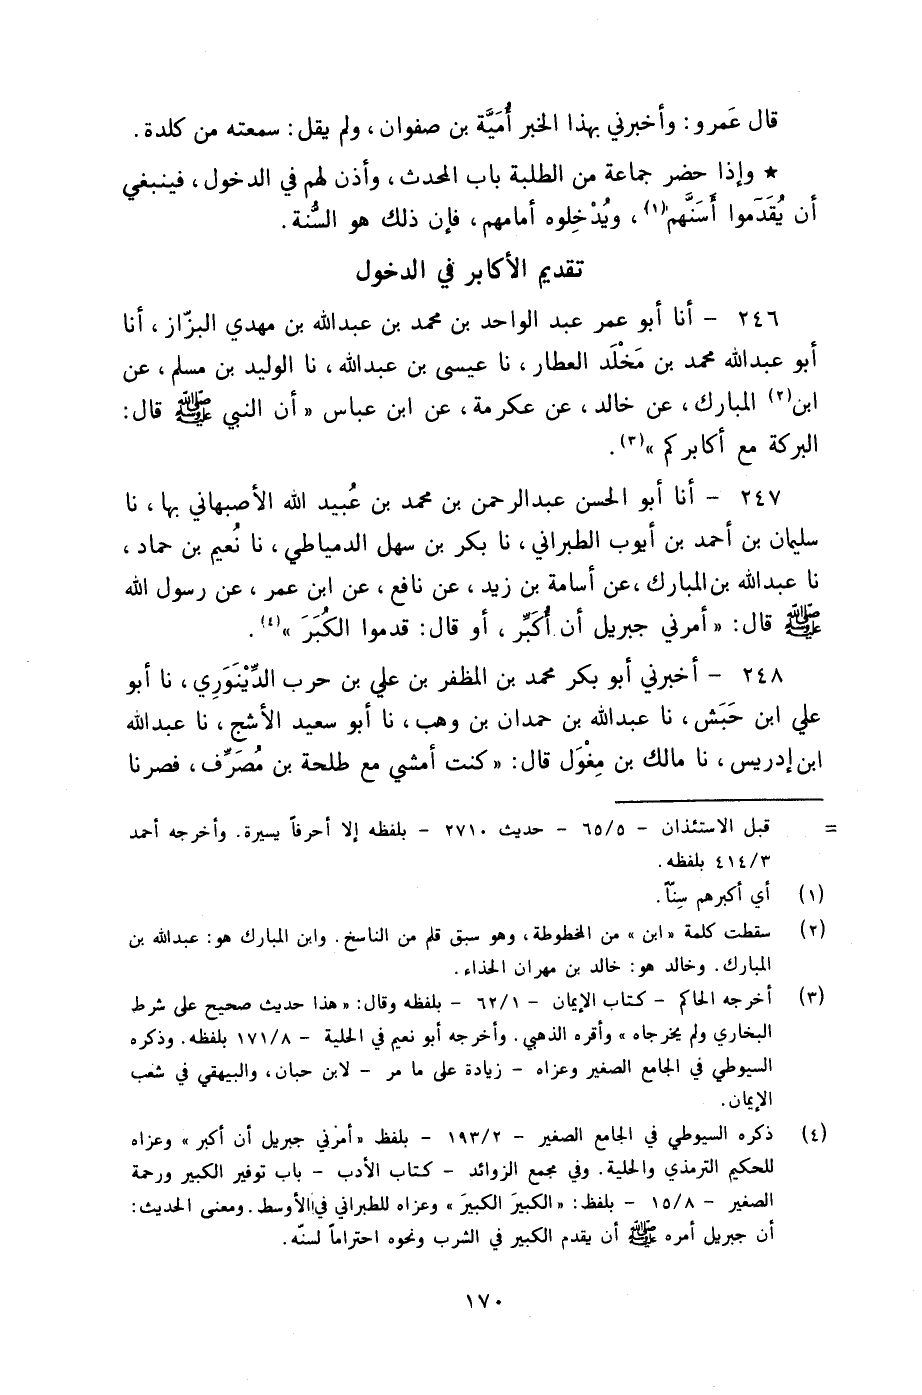 قال عَمرو: وأخبرني بهذا الخبر أُمَيَّة بن صفوان، ولم يقل: سمعته من كلدة.
★ وإذا حضر جماعة من الطلبة باب المحدث، وأذن لهم في الدخول، فينبغي
أن يُقَدَموا أَسَنَّهم(١)، ويُدْخِلوه أمامهم، فإن ذلك هو السُّنة.
تقديم الأكابر في الدخول
٢٤٦ – أنا أبو عمر عبد الواحد بن محمد بن عبدالله بن مهدي البزّاز، أنا
أبو عبدالله محمد بن مَخْلَد العطار، نا عيسى بن عبدالله، نا الوليد بن مسلم، عن
ابن(٢) المبارك، عن خالد، عن عكرمة، عن ابن عباس « أن النبي ﷺ قال:
البركة مع أكابركم »(٣).
٢٤٧ – أنا أبو الحسن عبدالرحمن بن محمد بن عُبيد الله الأصبهاني بها، نا
سليمان بن أحمد بن أيوب الطبراني، نا بكر بن سهل الدمياطي، نا نُعيم بن حماد،
نا عبدالله بن المبارك، عن أسامة بن زيد، عن نافع، عن ابن عمر، عن رسول الله
ﷺ قال: « أمرني جبريل أن أُكَبِّر، أو قال: قدموا الكُبَرَ »(٤).
٢٤٨ – أخبرني أبو بكر محمد بن المظفر بن علي بن حرب الدِّيْنَوَرِي، نا أبو
علي ابن حَبَش، نا عبدالله بن حمدان بن وهب، نا أبو سعيد الأشج، نا عبدالله
ابن إدريس، نا مالك بن مِغْوَل قال: « كنت أمشي مع طلحة بن مُصَرِّف، فصرنا
= قبل الاستئذان – ٦٥/٥ – حديث ٢٧١٠ – بلفظه إلا أحرفاً يسيرة. وأخرجه أحمد
٤١٤/٣ بلفظه.
(١) أي أكبرهم سِنّاً.
(٢) سقطت كلمة « ابن » من المخطوطة، وهو سبق قلم من الناسخ. وابن المبارك هو: عبدالله بن
المبارك. وخالد هو: خالد بن مهران الحذاء.
(٣) أخرجه الحاكم – كتاب الإيمان – ٦٢/١ – بلفظه وقال: « هذا حديث صحيح على شرط
البخاري ولم يخرجاه » وأقره الذهبي. وأخرجه أبو نعيم في الحلية – ١٧١/٨ بلفظه. وذكره
السيوطي في الجامع الصغير وعزاه – زيادة على ما مر – لابن حبان، والبيهقي في شعب
الإيمان.
(٤) ذكره السيوطي في الجامع الصغير – ١٩٣/٢ – بلفظ « أمرني جبريل أن أكبر » وعزاه
للحكيم الترمذي والحلية. وفي مجمع الزوائد – كتاب الأدب – باب توفير الكبير ورحمة
الصغير – ١٥/٨ – بلفظ: « الكبيرَ الكبيرَ » وعزاه للطبراني في الأوسط. ومعنى الحديث:
أن جبريل أمره ﷺ أن يقدم الكبير في الشرب ونحوه احتراماً لسنّه.
١٧٠